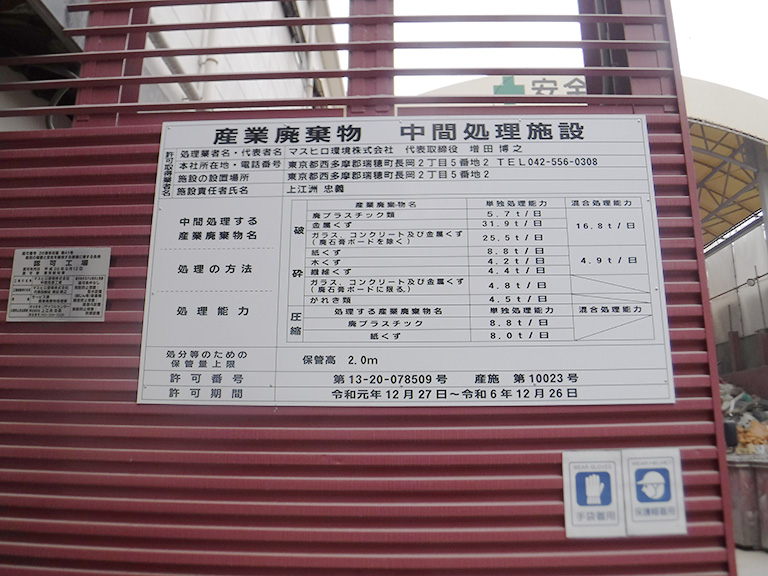 安全
産業廃棄物 中間処理施設
許可取得業者名
処理業者名・代表者名 マスヒロ環境株式会社 代表取締役 増田 博之
本社所在地・電話番号 東京都西多摩郡瑞穂町長岡2丁目5番地2 TEL042-556-0308
施設の設置場所 東京都西多摩郡瑞穂町長岡2丁目5番地2
施設責任者氏名 上江洲 忠義
中間処理する
産業廃棄物名
処理の方法
処理能力
破砕
産業廃棄物名 単独処理能力 混合処理能力
廃プラスチック類 5.7t/日
金属くず 31.9t/日 16.8t/日
ガラス、コンクリート及び金属くず
(廃石膏ボードを除く) 25.5t/日
紙くず 8.8t/日
木くず 4.2t/日 4.9t/日
繊維くず 4.4t/日
ガラス、コンクリート及び金属くず
(廃石膏ボードに限る) 4.8t/日
がれき類 4.5t/日
圧縮
処理する産業廃棄物名 単独処理能力 混合処理能力
廃プラスチック 8.8t/日
紙くず 8.0t/日
処分等のための
保管量上限 保管高 2.0m
許可番号 第13-20-078509号 産施 第10023号
許可期間 令和元年12月27日～令和6年12月26日
認可工場
WEAR GLOVES
手袋着用
保護帽着用